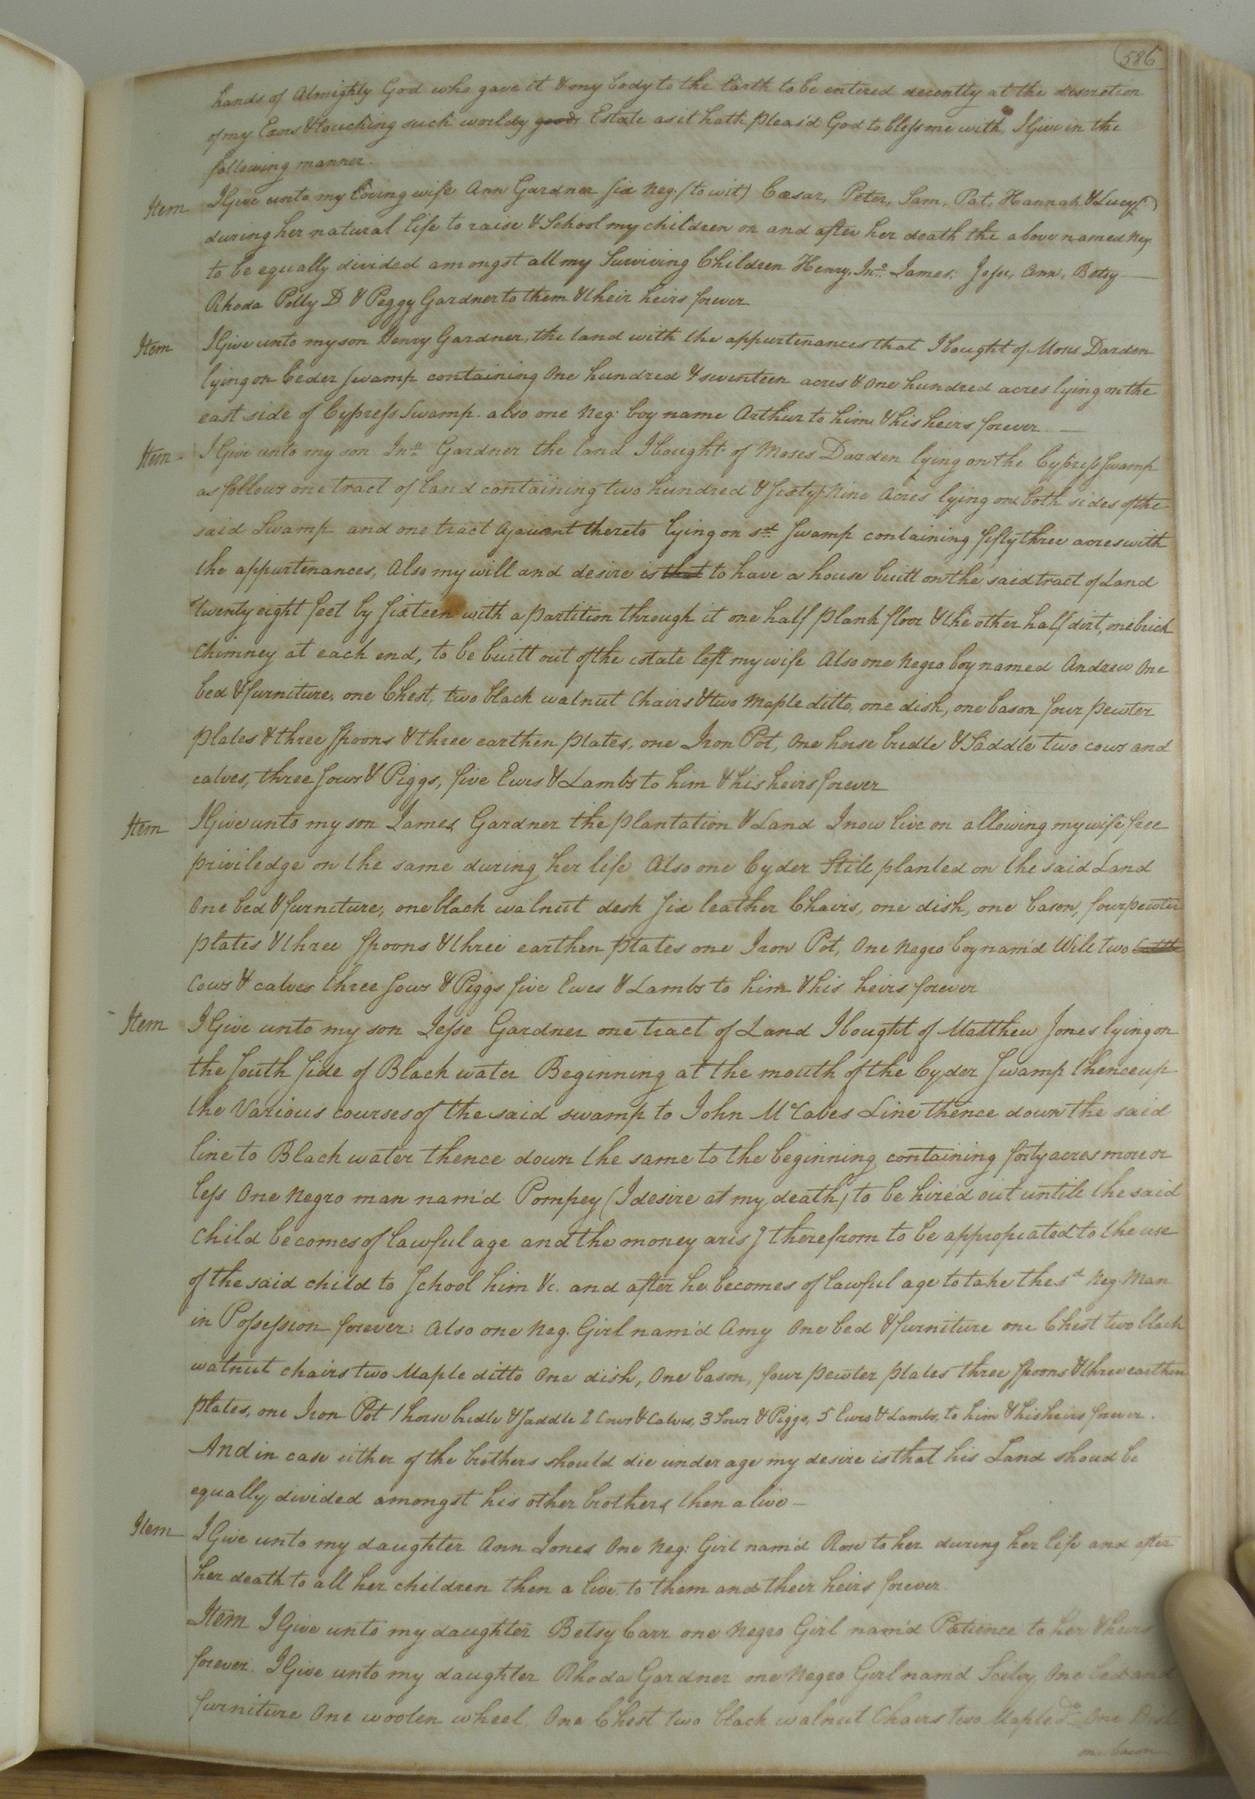 586
hands of Almighty God who gave it & my body to the Earth to be entired decently at the discretion
of my Exors & touching such worldy goods Estate as it hath pleas'd God to bless me with I Give in the
following manner.
Item I Give unto my loving wife Ann Gardner six Neg. (to wit) Cæsar, Peter, Sam, Pat, Hannah & Lucy)
during her natural life to raise & School my children on and after her death the above named Neg
to be equally divided amongst all my Surviving Children Henry, Jno. James, Jesse, Ann, Betsy
Rhoda Polly D & Peggy Gardner to them & their heirs forever
Item I Give unto my son Henry Gardner, the land with the appurtenances that I bought of Moses Darden
lying on Ceder Swamp containing One hundred & seventeen acres & One hundred acres lying on the
east side of Cypress Swamp. also one Neg. boy name Arthur to him & his heirs forever
Item I Give unto my son Jno. Gardner the land I bought of Moses Darden lying on the Cypress Swamp
as follows one tract of land containing two hundred & Sixty Nine Acres lying on both sides of the
said Swamp and one tract Ajacent thereto lying on sd. Swamp containing fifty three acres with
the appurtenances, Also my will and desire is that to have a house built on the said tract of Land
Twenty eight feet by sixteen with a partition through it one half plank floor & the other half dirt, one brick
Chimney at each end, to be built out of the estate left my wife Also one Negro boy named Andrew One
bed & furniture, one Chest, two black walnut Chairs & two Maple ditto, one dish, one bason four pewter
plates & three Spoons & three earthen plates, one Iron Pot, One horse bridle & Saddle two cows and
calves, three Sows & Piggs, five Ewes & Lambs to him & his heirs forever
Item I Give unto my son James Gardner the plantation & Land I now live on allowing my wife free
priviledge on the same during her life Also one Cyder Still planted on the said Land
One bed & furniture, one black walnut desk six leather Chairs, one dish, one bason, four pewter
plates & three Spoons & three earthen plates one Iron Pot, One Negro boy nam'd Will two
Cows & calves three Sows & Piggs five Ewes & Lambs to him & his heirs forever
Item I Give unto my son Jesse Gardner one tract of Land I bought of Matthew Jones lying on
the South Side of Black water Beginning at the mouth of the Cyder Swamp thence up
the Various courses of the said swamp to John McCabes Line thence down the said
line to Black water thence down the same to the beginning containing forty acres more or
less One Negro man nam'd Pompey (I desire at my death) to be hired out untile the said
Child becomes of lawful age and the money arisg therefrom to be appropiated to the use
of the said child to School him &c. and after he becomes of lawful age to take the sd Neg. Man
in Possession forever: Also one Neg. Girl nam'd Amy One bed & furniture one Chest two black
walnut chairs two Maple ditto One dish, One bason, four pewter plates three Spoons & three earthen
plates, one Iron Pot 1 horse bridle & Saddle 2 Cows & Calves, 3 Sows & Piggs, 5 Ewes & Lambs, to him & his heirs forever.
And in case either of the brothers should die under age my desire is that his Land shoud be
equally divided amongst his other brothers then alive
Item I Give unto my daughter Ann Jones One Neg: Girl nam'd Rose to her during her life and after
her death to all her children then alive to them and their heirs forever
Item I Give unto my daughter Betsy Carr one Negro Girl nam'd Patience to her & heirs
forever. I Give unto my daughter Rhoda Gardner one Negro Girl nam'd Scilvy One bed and
furniture One woolen wheel One Chest two black walnut Chairs two Maple do. One Dish
one bason